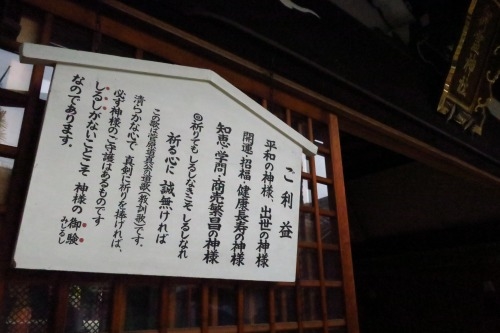 ご利益
平和の神様、出世の神様
開運・招福・健康長寿の神様
知恵・学問・商売繁昌の神様
◎祈りてもしるしなきこそ しるしなれ
祈る心に 誠無ければ
この歌は菅原道真公の道歌(教訓歌)です。
清らかな心で 真剣に祈りを捧げれば、
必ず神様のご守護はあるものです
しるしがないことこそ 神様の御験
みしるし
なのであります。